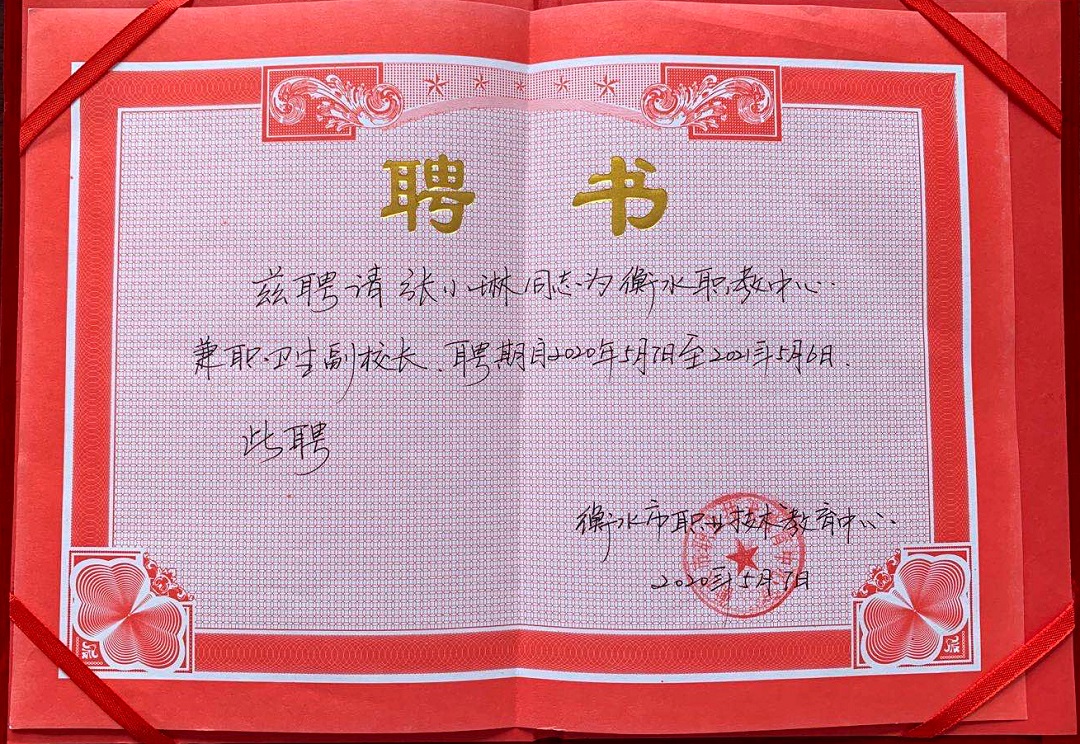 聘 书
兹聘请张小琳同志为衡水职教中心
兼职卫生副校长、聘期自2020年5月7日至2021年5月6日.
此聘
衡水市职业技术教育中心.
2020年5月7日